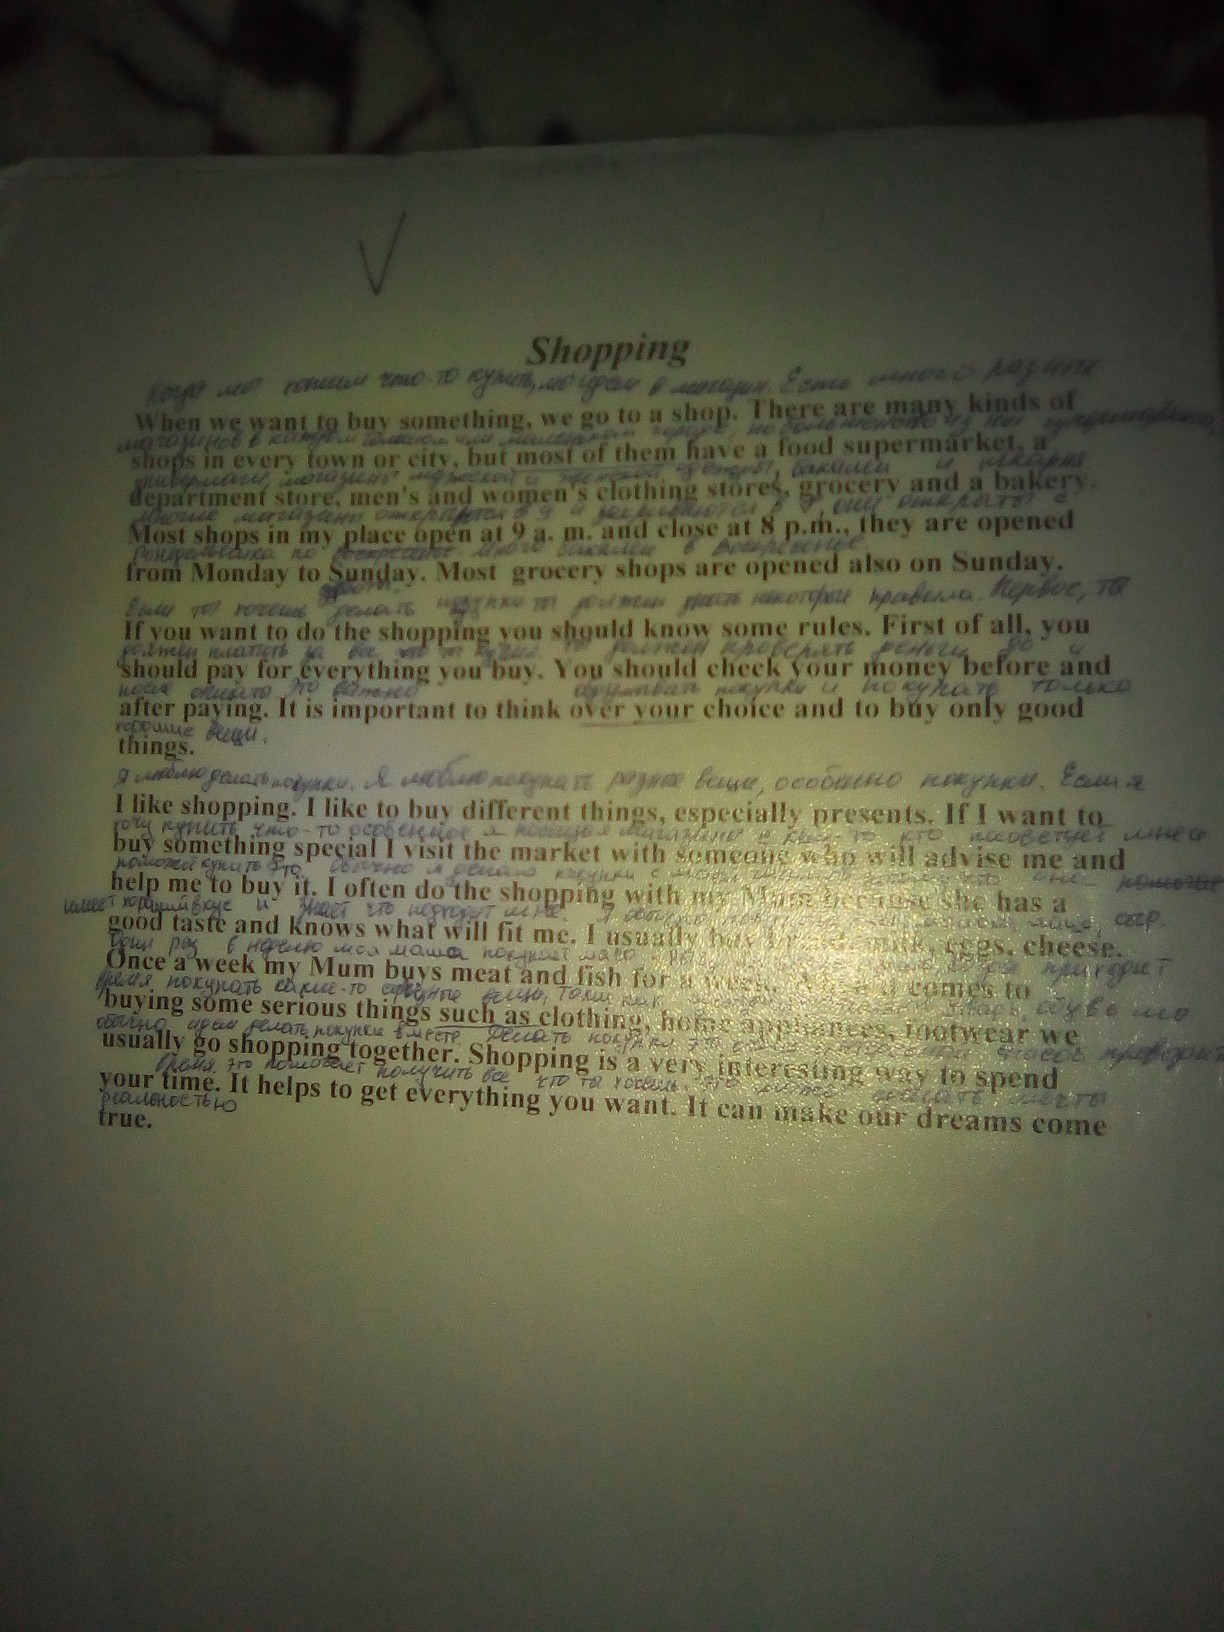 Shopping
Когда мы хотим что-то купить, мы идем в магазин. Есть много разных
When we want to buy something, we go to a shop. There are many kinds of
магазинов в каждом большом или маленьком городе, но большинство из них
shops in every town or city, but most of them have a food supermarket, a
магазины мужской и женской одежды, бакалеи и пекарня
department store, men's and women's clothing stores, grocery and a bakery.
Многие магазины открываются в 9 и закрываются в 8, они открыты с
Most shops in my place open at 9 a. m. and close at 8 p.m., they are opened
понедельника по воскресенье много бакалеи в воскресенье
from Monday to Sunday. Most grocery shops are opened also on Sunday.
Если ты хочешь делать покупки ты должен знать некоторые правила. Первое, ты
If you want to do the shopping you should know some rules. First of all, you
должен платить за все что ты купил. Ты должен проверять деньги до и
should pay for everything you buy. You should check your money before and
после оплаты. Это важно обдумывать покупки и покупать только
after paying. It is important to think over your choice and to buy only good
хорошие вещи.
things.
Я люблю делать покупки. Я люблю покупать разные вещи, особенно покупки. Если я
I like shopping. I like to buy different things, especially presents. If I want to
хочу купить что-то особенное я посещая магазины с кем-то кто посоветует мне и
buy something special I visit the market with someone who will advise me and
поможет купить это. обычно я делаю покупки с моей мамой потому что она
help me to buy it. I often do the shopping with my Mum because she has a
имеет хороший вкус и знает что подходит мне. Я обычно сыр.
good taste and knows what will fit me. I usually buy bread, milk, eggs, cheese.
Один раз в неделю моя мама покупает мясо приходит
Once a week my Mum buys meat and fish for a week. comes to
время покупать какие-то серьезные вещи, такие как обувь мы
buying some serious things such as clothing, home appliances, footwear we
обычно идем делать покупки вместе. Делать покупки это способ проводить
usually go shopping together. Shopping is a very interesting way to spend
время. это помогает получить все что ты хочешь. это может сделать мечты
your time. It helps to get everything you want. It can make our dreams come
реальностью
true.